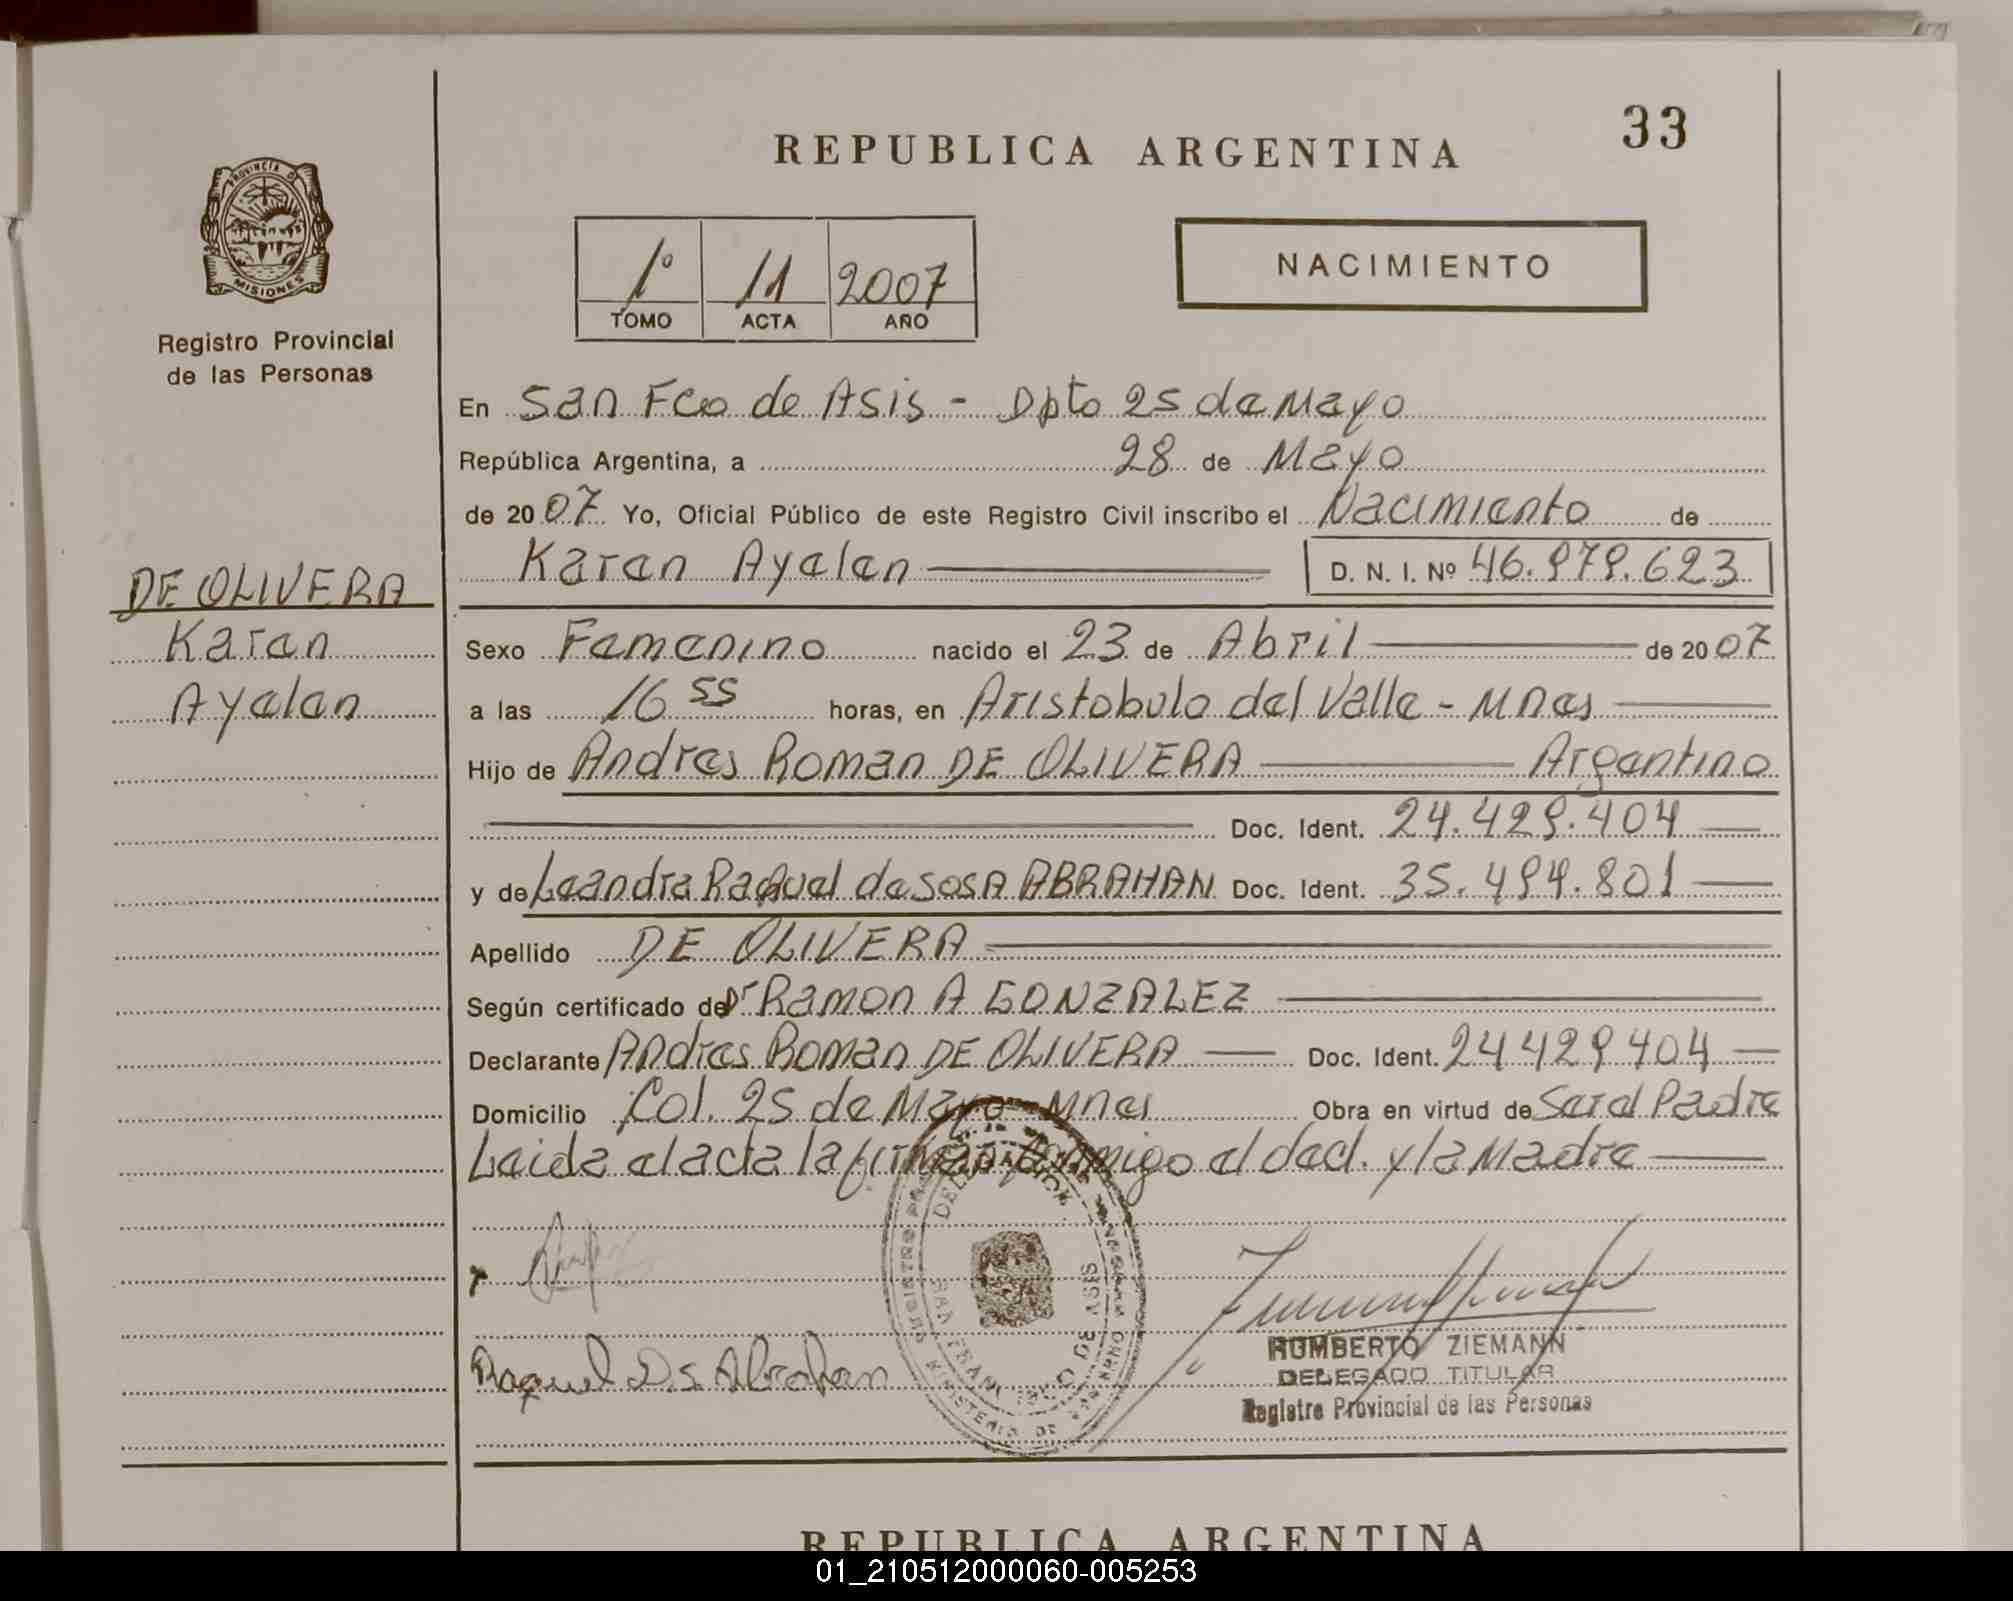 33
REPUBLICA ARGENTINA
PROVINCIA DE MISIONES
1º 11 2007
TOMO ACTA AÑO
NACIMIENTO
Registro Provincial
de las Personas
En San Fco de Asis - Dpto 25 de Mayo
República Argentina, a 28 de Mayo
de 2007 Yo, Oficial Público de este Registro Civil inscribo el Nacimiento de
Karen Ayelen D. N. I. Nº 46.979.623
DE OLIVERA
Karen
Ayelen
Sexo Femenino nacido el 23 de Abril de 2007
a las 16 55 horas, en Aristobulo del Valle - Mnes
Hijo de Andres Roman DE OLIVERA Argentino
Doc. Ident. 24.429.404
y de Leandra Raquel de Sosa ABRAHAN Doc. Ident. 35.494.801
Apellido DE OLIVERA
Según certificado de Dr Ramon A GONZALEZ
Declarante Andres Roman DE OLIVERA Doc. Ident. 24 429 404
Domicilio Col. 25 de Mayo - Mnes Obra en virtud de Ser el Padre
Leida el acta la firman conmigo el decl. y la Madre
Raquel D.S. Abrahan
SAN FRANCISCO DE ASIS
HUMBERTO ZIEMANN
DELEGADO TITULAR
Registro Provincial de las Personas
REPUBLICA ARGENTINA
01_210512000060-005253